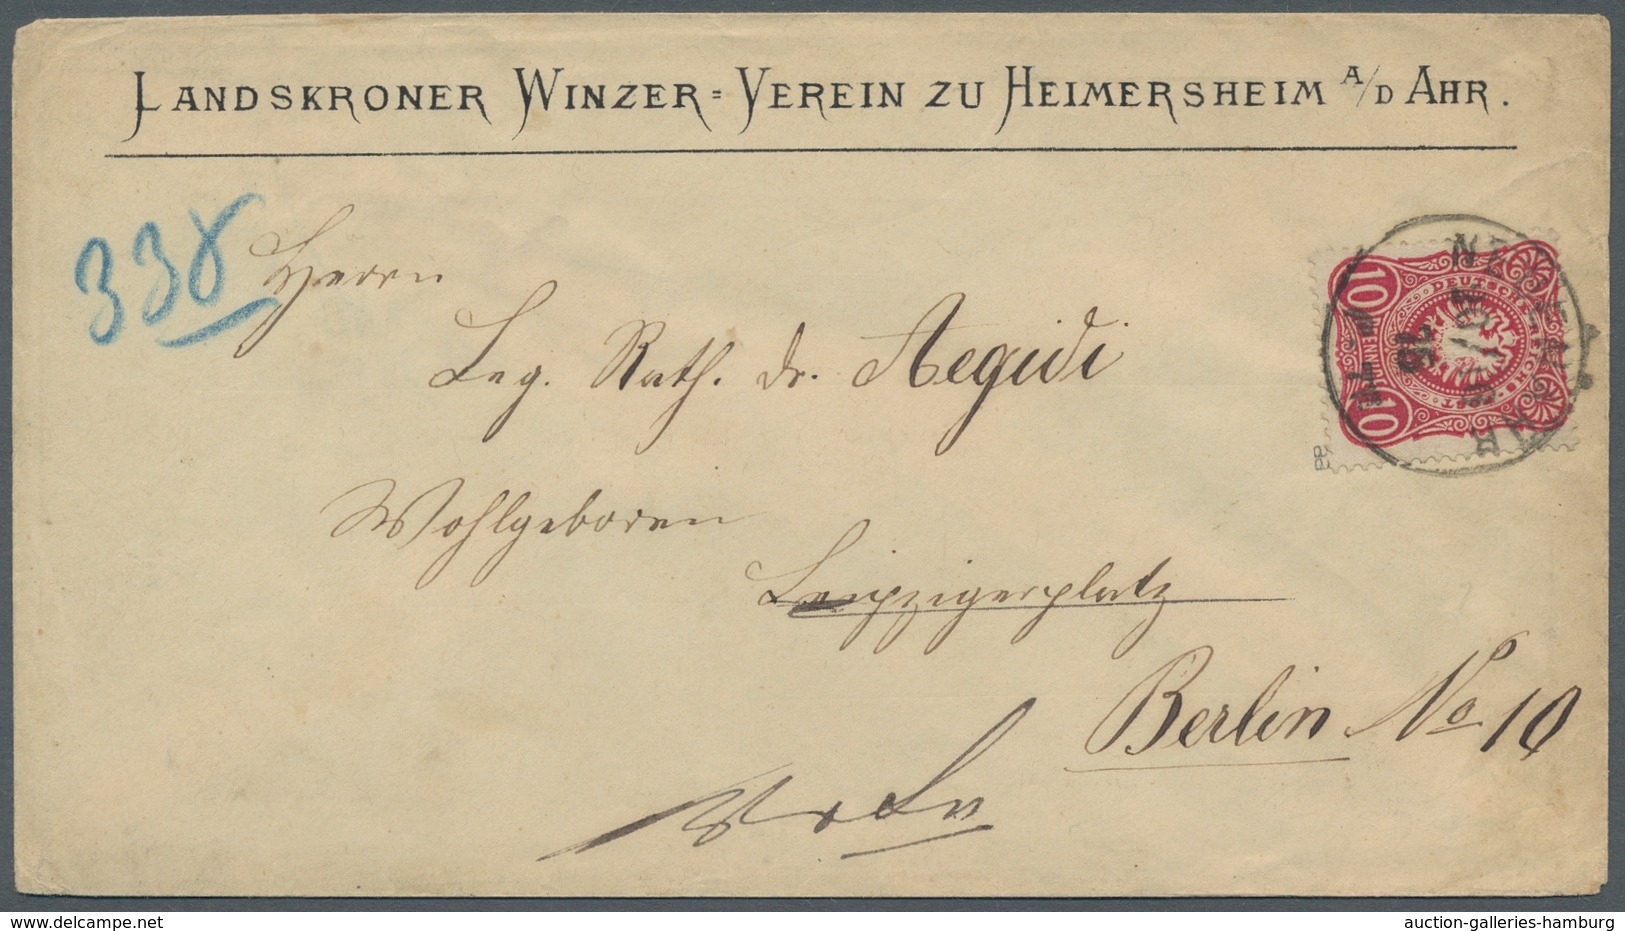 LANDSKRONER WINZER=VEREIN ZU HEIMERSHEIM A/D AHR.
338
Herrn
Leg. Rath. dr. Aegidi
Wohlgeboren
Leipzigerplatz
Berlin No 10
10 PFENNIG 10
DEUTSCHE REICHS-POST
AHR
75
auction-galleries-hamburg